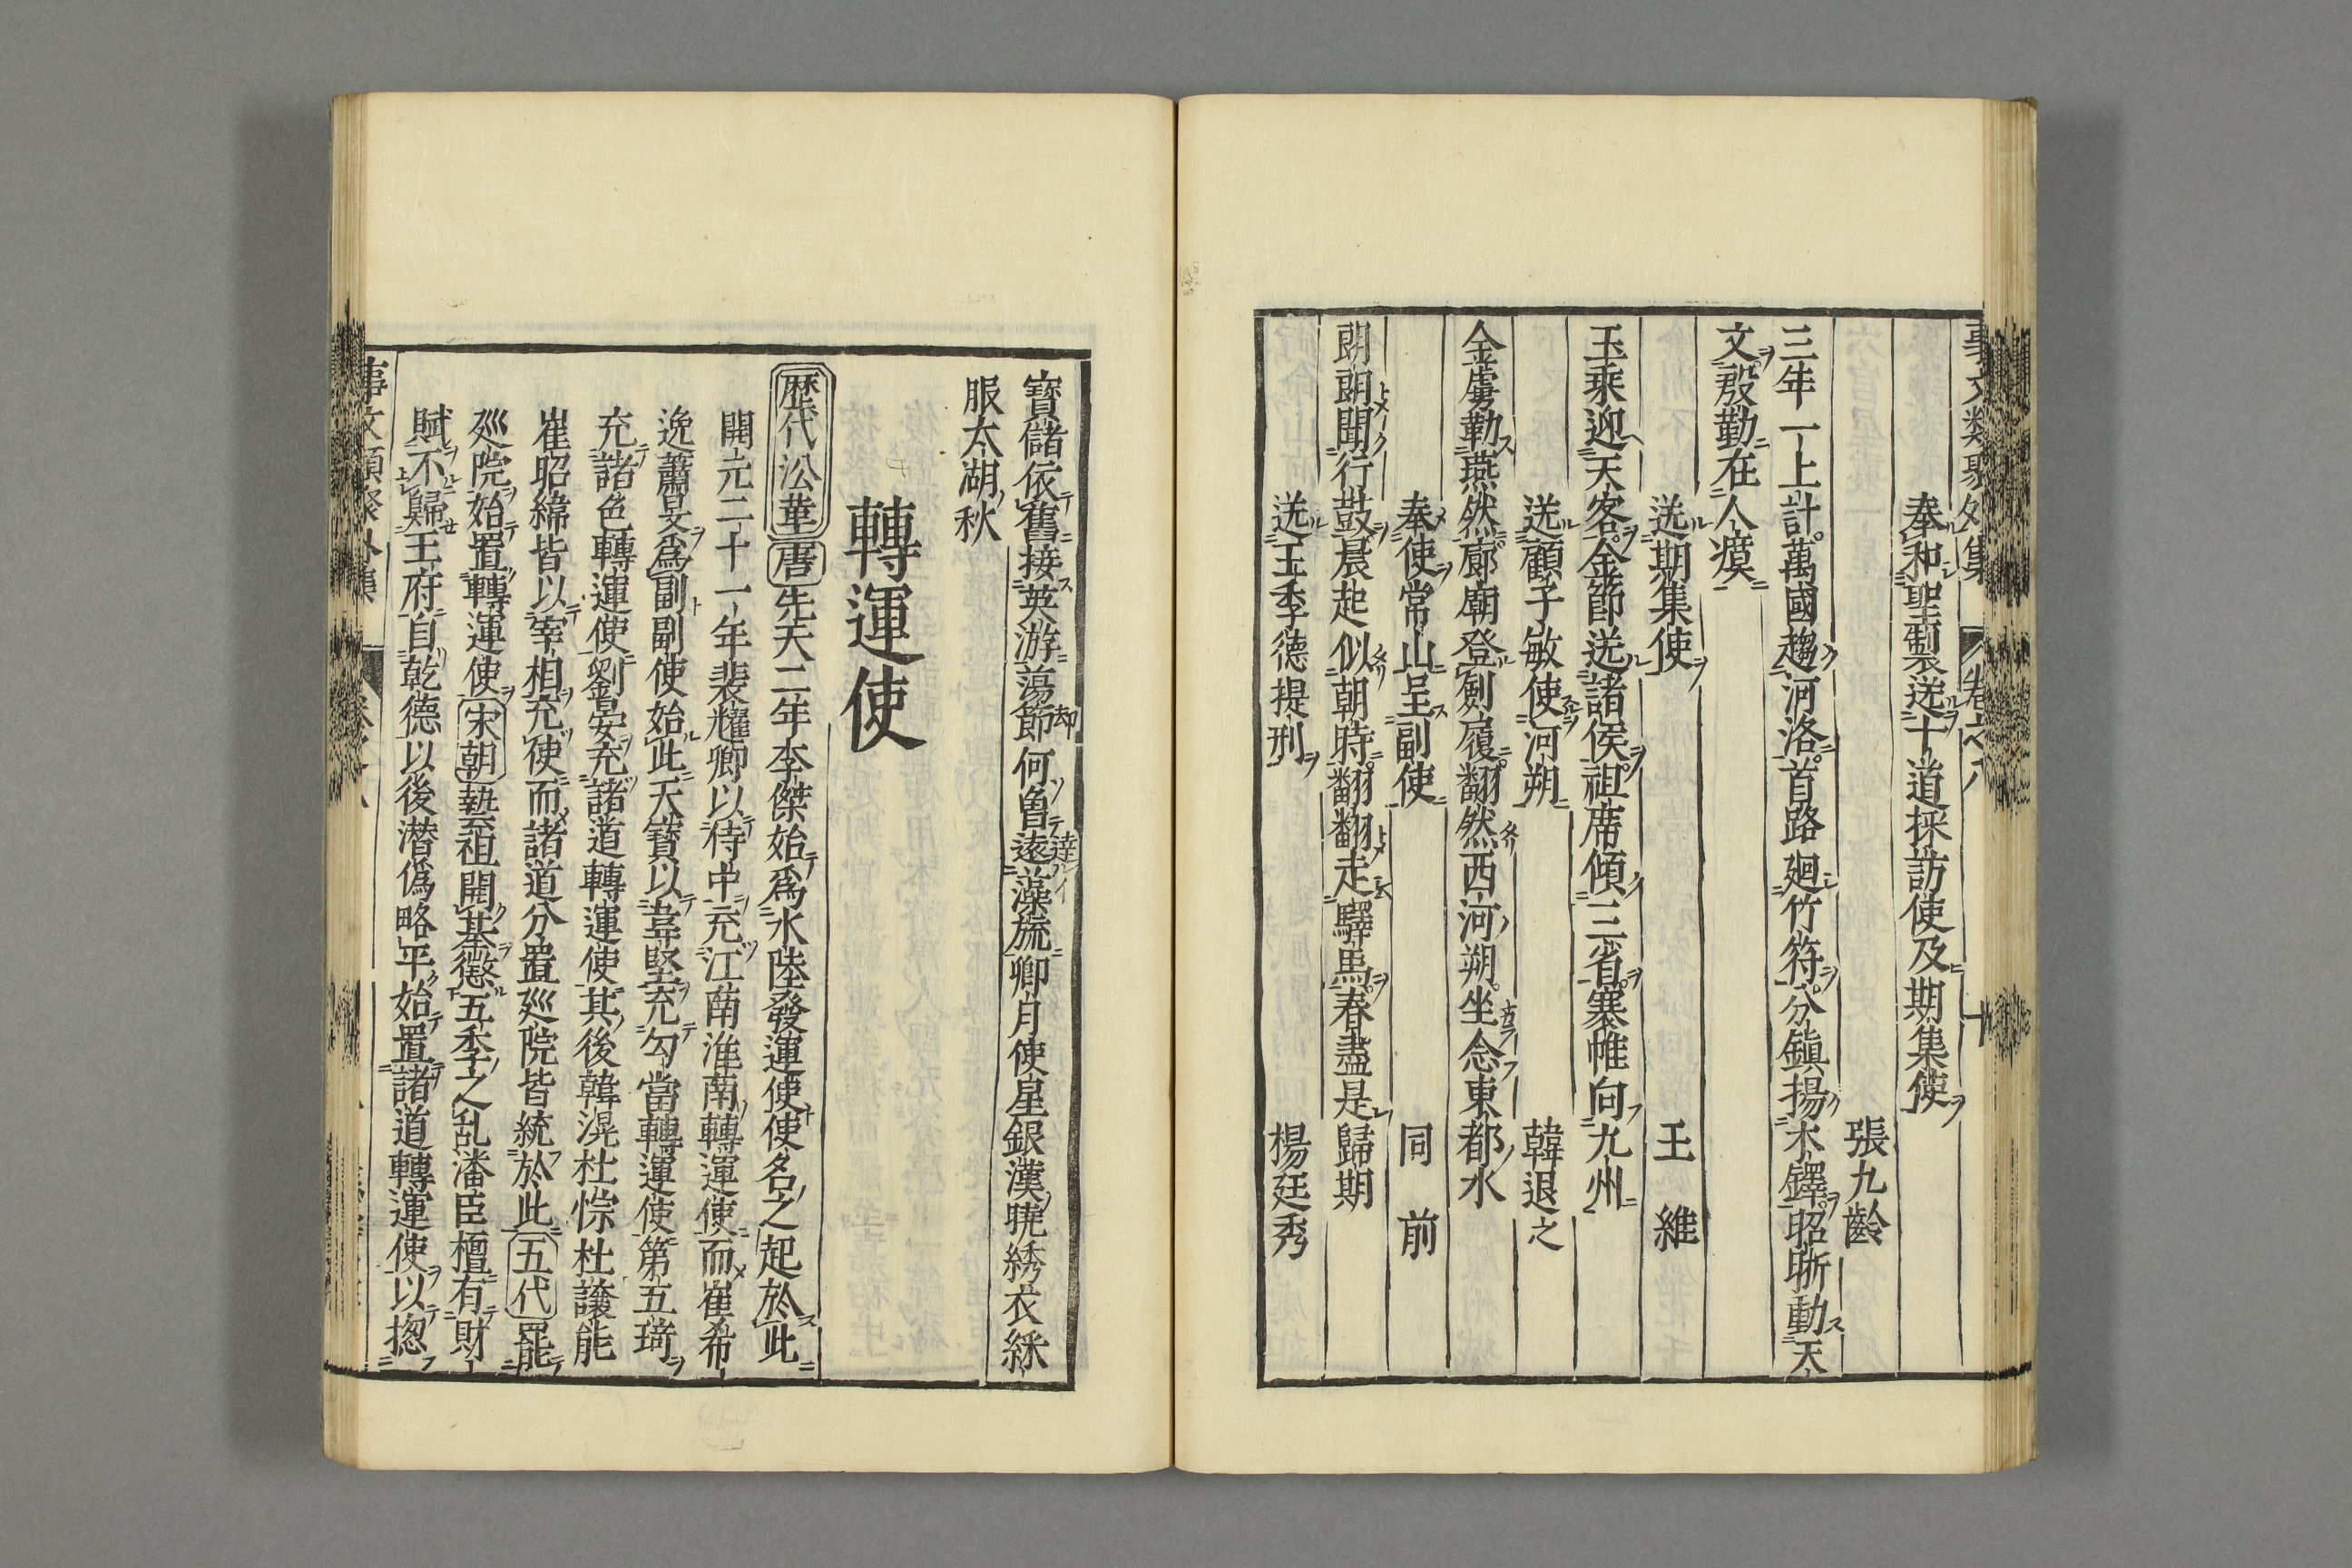 事文類聚外集 卷之八 十
奉和聖製送十道採訪使及期集使
張九齡
三年一上計萬國趨河洛首路廻竹符分鎭揚木鐸昭晣動天
文殷勤在人瘼
送期集使 王維
玉乘迎天客金節送諸侯祖席傾三省褰帷向九州
送顧子敏使河朔 韓退之
金虜勒燕然廊廟登劍履翻然西河朔坐念東都水
奉使常山呈副使 同前
朗朗聞行鼓晨起似朝時翻翻走驛馬春盡是歸期
送王季德提刑 楊廷秀
寶儲依舊接英游蕩節何魯遠藻旒卿月使星銀漢曉綉衣綵
服太湖秋
轉運使
歷代沿革唐先天二年李傑始爲水陸發運使使名之起於此
開元二十一年裴耀卿以侍中充江南淮南轉運使而崔希
逸蕭炅爲副副使始此天寶以韋堅充勾當轉運使第五琦
充諸色轉運使劉晏充諸道轉運使其後韓滉杜悰杜讓能
崔昭緯皆以宰相充使而諸道分置廵院皆統於此五代罷
廵院始置轉運使宋朝藝祖開基懲五季之乱潘臣檀有財
賦不歸王府自乾德以後潜僞略平始置諸道轉運使以揔
事文類聚外集 卷之八